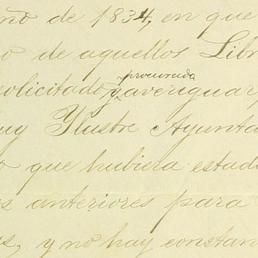 ño de 1834, en que
o de aquellos Libr
procurado
solicitado y averiguar,
uy Ilustre Ayunta
o que hubiera estad
es anteriores para
es, y no hay constan